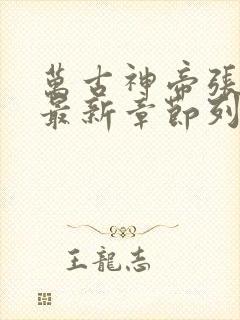 萬古神帝張
最新章節列
王龍志